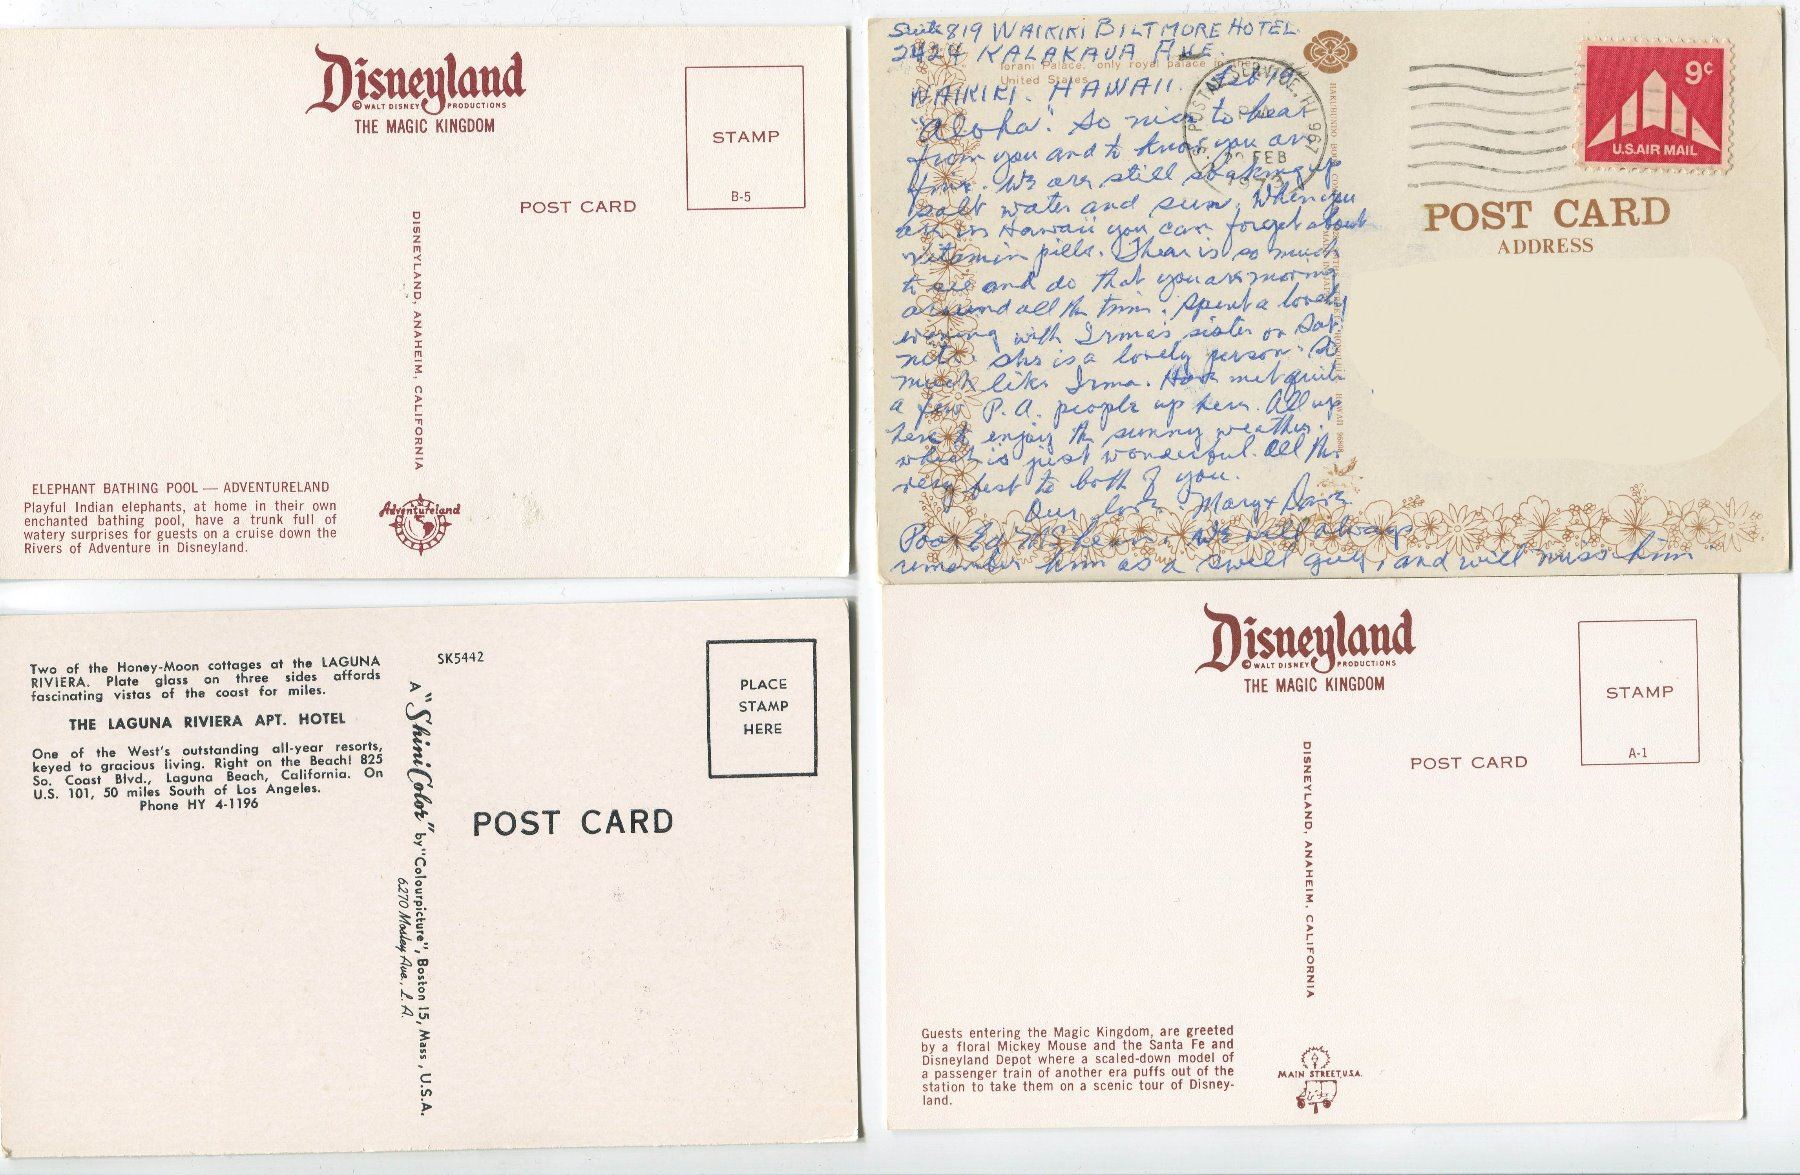 Disneyland
© WALT DISNEY PRODUCTIONS
THE MAGIC KINGDOM
STAMP
B-5
POST CARD
DISNEYLAND, ANAHEIM, CALIFORNIA
ELEPHANT BATHING POOL — ADVENTURELAND
Playful Indian elephants, at home in their own
enchanted bathing pool, have a trunk full of
watery surprises for guests on a cruise down the
Rivers of Adventure in Disneyland.
Adventureland
Suite 819 WAIKIKI BILTMORE HOTEL.
2424 KALAKAUA AVE.
Iorani Palace, only royal palace in the
United States
WAIKIKI. HAWAII. Feb 19
"Aloha". So nice to hear
from you and to know you are
fine. We are still soaking up
salt water and sun. When you
are in Hawaii you can forget about
vitamin pills. Thear is so much
to see and do that you are moving
around all the time. Spent a lovely
evening with Irma's sister on Sat.
nite. She is a lovely person. So
much like Irma. Have met quite
a few P.A. people up here. All up
here to enjoy the sunny weather.
which is just wonderful. All the
very best to both of you.
Our love. Mary + Dave
Poor Ed. We will always
remember him as a swell guy, and will miss him
POSTAL SERVICE, H 967
PM
FEB
9¢
U.S.AIR MAIL
POST CARD
ADDRESS
Two of the Honey-Moon cottages at the LAGUNA
RIVIERA. Plate glass on three sides affords
fascinating vistas of the coast for miles.
THE LAGUNA RIVIERA APT. HOTEL
One of the West's outstanding all-year resorts,
keyed to gracious living. Right on the Beach! 825
So. Coast Blvd., Laguna Beach, California. On
U.S. 101, 50 miles South of Los Angeles.
Phone HY 4-1196
SK5442
A "ShiniColor" by "Colourpicture", Boston 15, Mass., U.S.A.
6270 Mosley Ave., L.A.
PLACE
STAMP
HERE
POST CARD
Disneyland
© WALT DISNEY PRODUCTIONS
THE MAGIC KINGDOM
STAMP
A-1
POST CARD
DISNEYLAND, ANAHEIM, CALIFORNIA
Guests entering the Magic Kingdom, are greeted
by a floral Mickey Mouse and the Santa Fe and
Disneyland Depot where a scaled-down model of
a passenger train of another era puffs out of the
station to take them on a scenic tour of Disney-
land.
MAIN STREET, U.S.A.